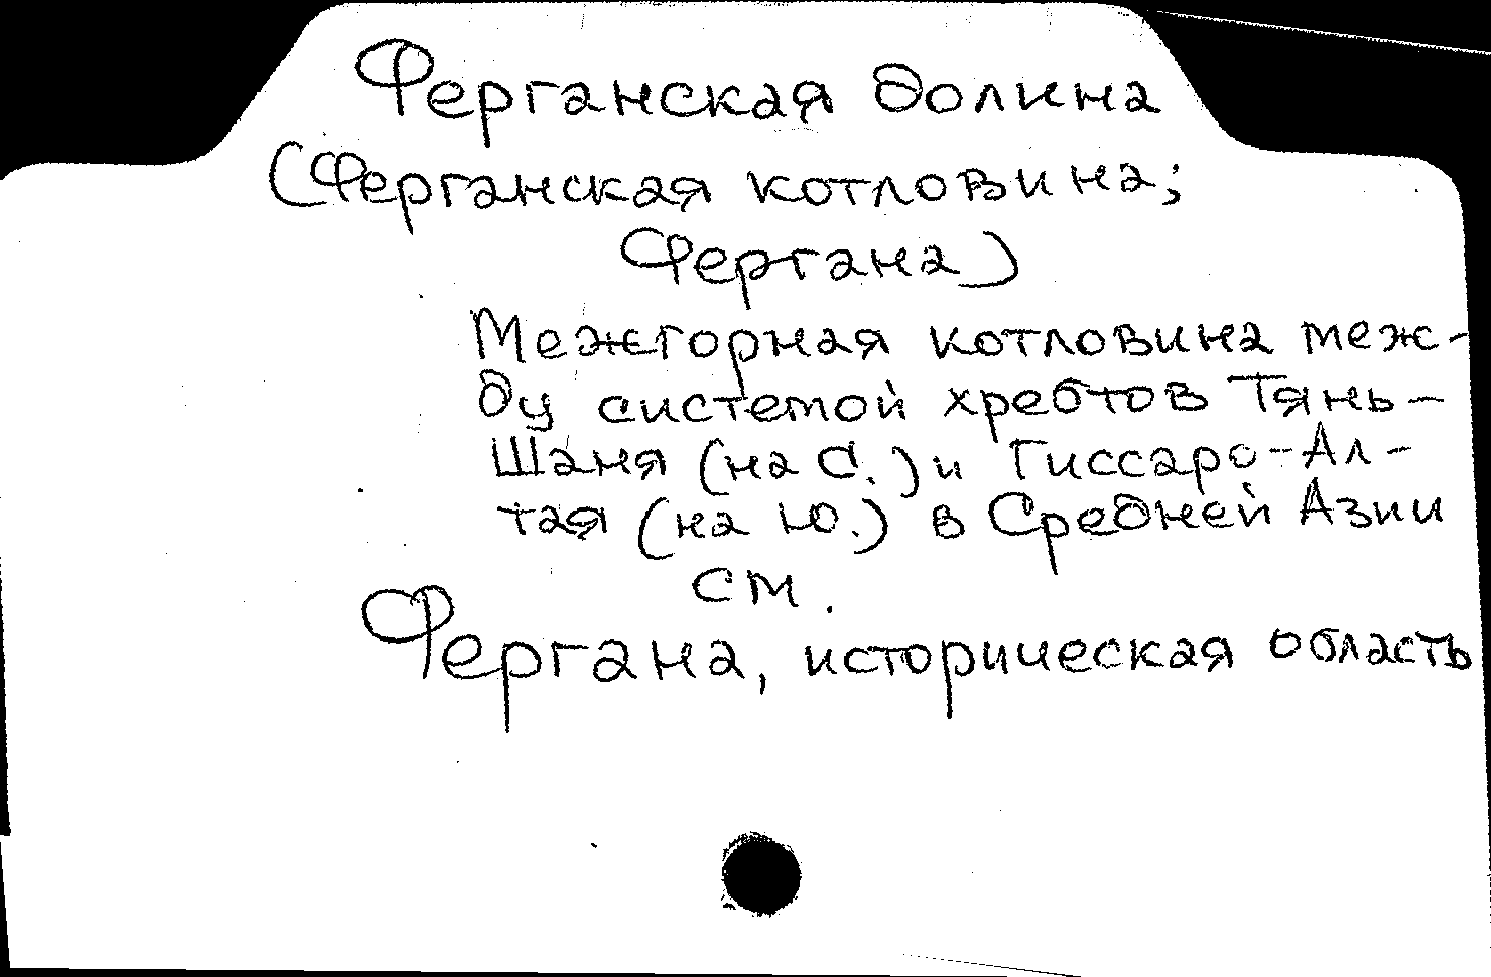 Ферганская долина
(Ферганская котловина;
Фергана)
Межгорная котловина меж-
ду системой хребтов Тянь-
Шаня (на С.) и Гиссаро-Ал-
тая (на Ю.) в Средней Азии
см.
Фергана, историческая область